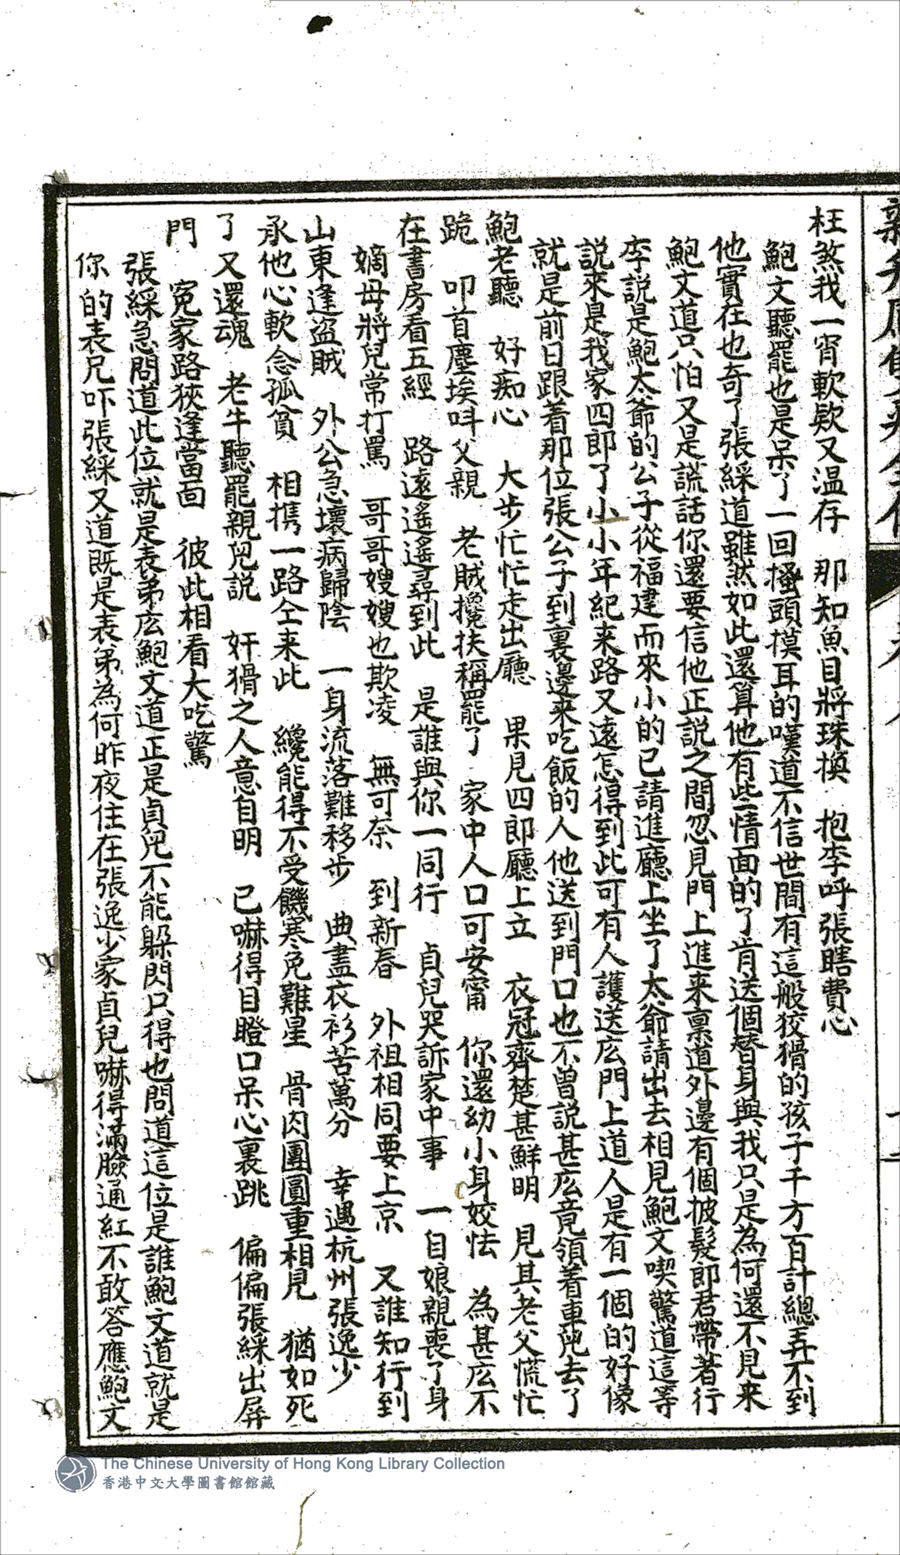 枉煞我一宵軟欵又温存　那知魚目將珠換　抱李呼張瞎費心
鮑文聽罷也是呆了一回搔頭摸耳的嘆道不信世間有這般狡猾的孩子千方百計總弄不到
他實在也奇了張綵道雖然如此還算他有些情面的了肯送個替身與我只是為何還不見來
鮑文道只怕又是謊話你還要信他正説之間忽見門上進来禀道外邊有個披髮郎君帶著行
李説是鮑太爺的公子從福建而來小的已請進廳上坐了太爺請出去相見鮑文喫驚道這等
説來是我家四郎了小小年紀来路又遠怎得到此可有人護送広門上道人是有一個的好像
就是前日跟着那位張公子到裏邊来吃飯的人他送到門口也不曾説甚広竟領着車兒去了
鮑老聽　好痴心　大步忙忙走出廳　果見四郎廳上立　衣冠齊楚甚鮮明　見其老父慌忙
跪　叩首塵埃呌父親　老賊攙扶稱罷了　家中人口可安甯　你還幼小身姣怯　為甚広不
在書房看五經　路遠遥遥尋到此　是誰與你一同行　貞兒哭訴家中事　一自娘親喪了身
嫡母將兒常打罵　哥哥嫂嫂也欺凌　無可奈　到新春　外祖相同要上京　又誰知行到
山東逢盗賊　外公急壞病歸陰　一身流落難移步　典盡衣衫苦萬分　幸遇杭州張逸少
承他心軟念孤貧　相携一路仝来此　纔能得不受饑寒免難星　骨肉團圓重相見　猶如死
了又還魂　老牛聽罷親兒説　奸猾之人意自明　已嚇得目瞪口呆心裏跳　偏偏張綵出屏
門　寃家路狹逢當面　彼此相看大吃驚
張綵急問道此位就是表弟広鮑文道正是貞兒不能躲閃只得也問道這位是誰鮑文道就是
你的表兄吓張綵又道既是表弟為何昨夜住在張逸少家貞兒嚇得滿臉通紅不敢答應鮑文
The Chinese University of Hong Kong Library Collection
香港中文大學圖書館館藏